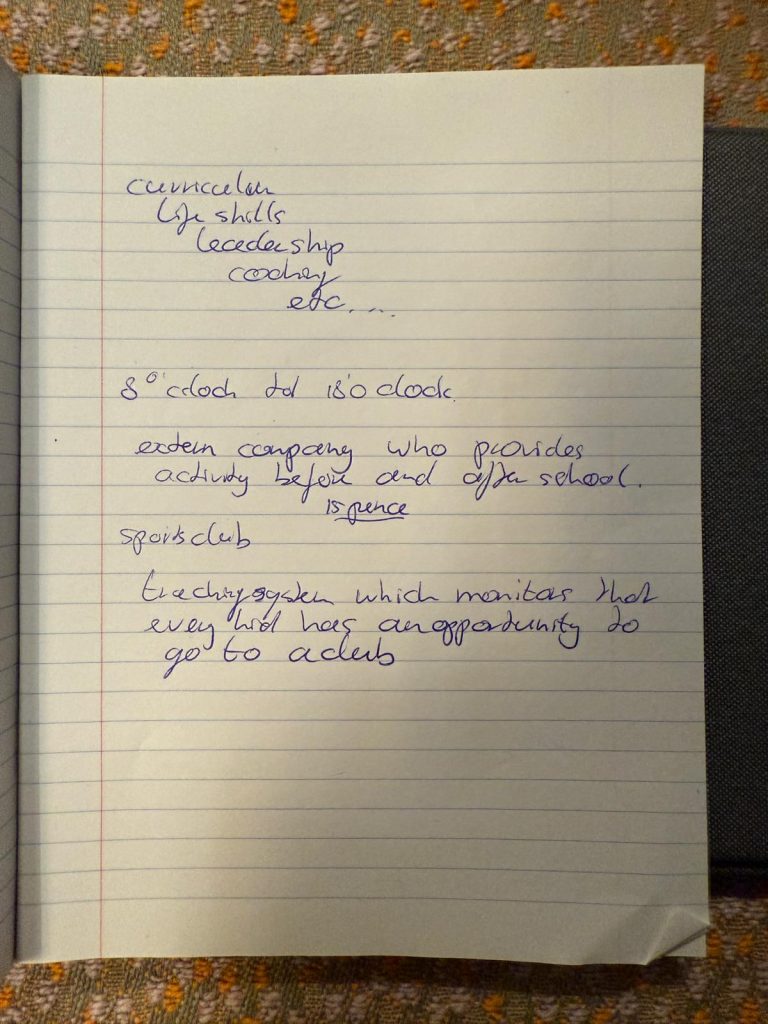 curriculum
life skills
leadership
coaching
etc....
8 o'clock tot 18 o'clock.
extern company who provides
activity before and after school.
15 pence
sportsclub
tracking system which monitors that
every kid has an opportunity to
go to a club